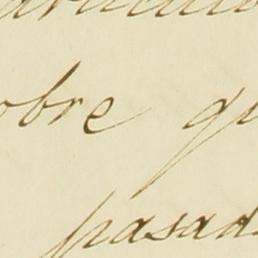 obre qu
pasad